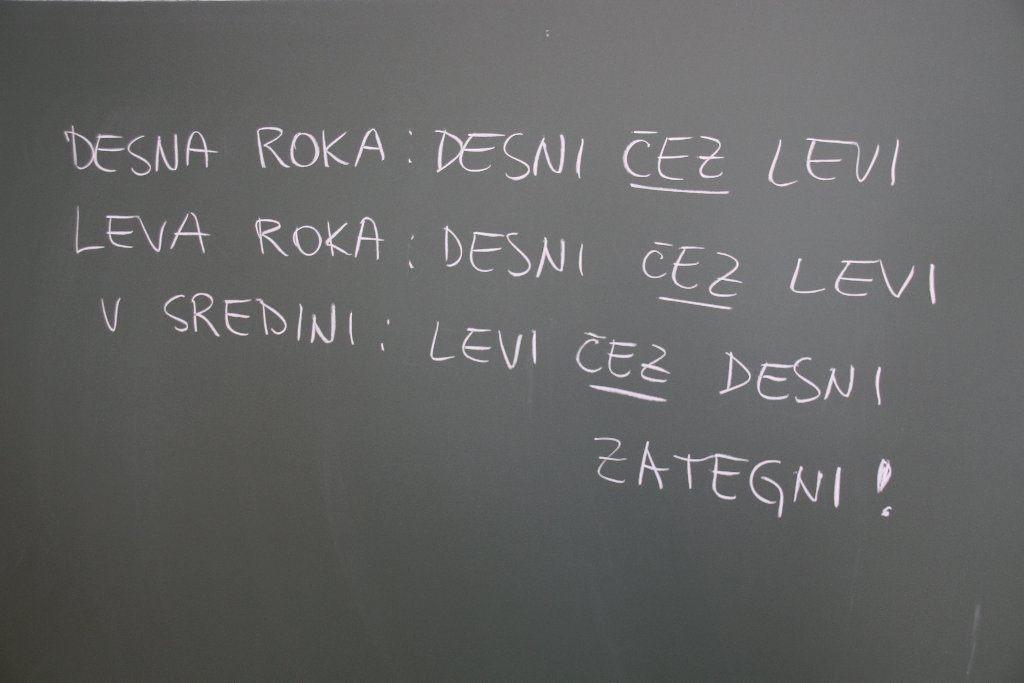 DESNA ROKA: DESNI ČEZ LEVI
LEVA ROKA: DESNI ČEZ LEVI
V SREDINI: LEVI ČEZ DESNI
ZATEGNI!